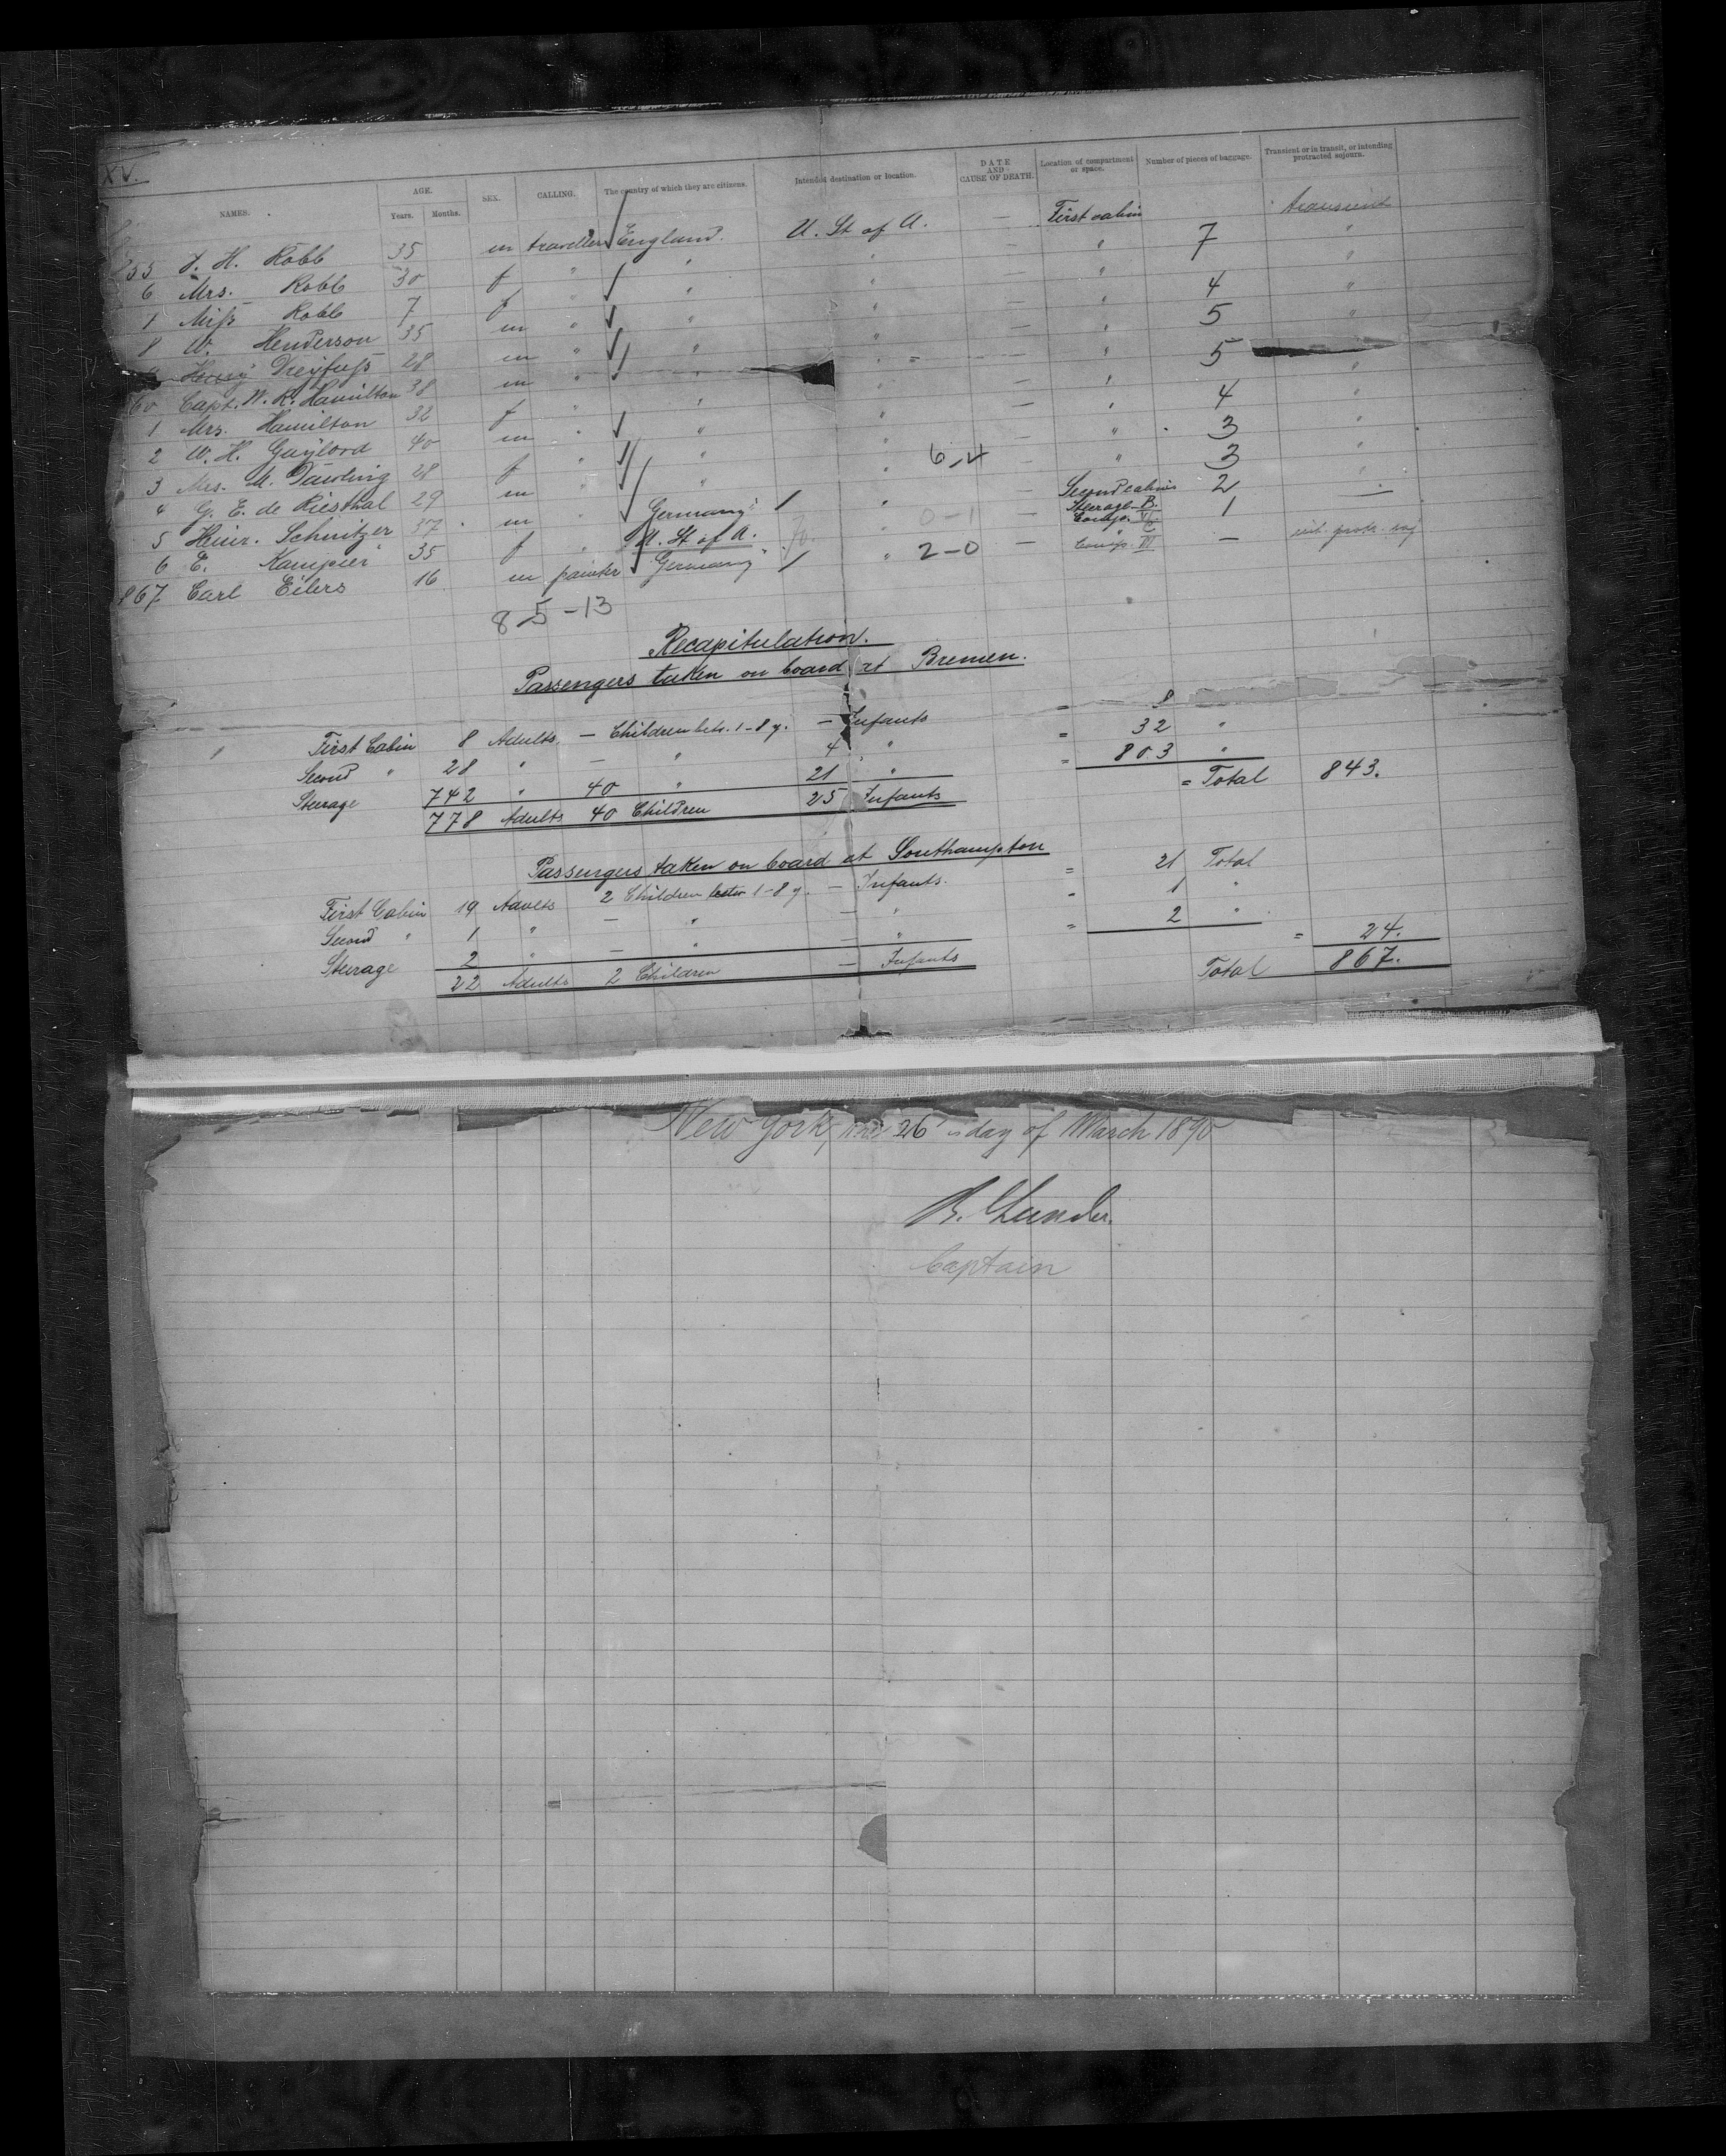 XV.
NAMES. AGE. Years. Months. SEX. CALLING. The country of which they are citizens. Intended destination or location. DATE AND CAUSE OF DEATH. Location of compartment or space. Number of pieces of baggage. Transient or in transit, or intending protracted sojourn.
855 J. H. Robb 35 m traveller England. U. St of A. — First cabin 7 transient
6 Mrs. Robb 30 f " " " — " "
1 Miss Robb 7 f " " " — " 4 "
8 W. Henderson 35 m " " " — " 5 "
Henry Dreyfuss 28 m " " " — " 5
60 Capt. W. R. Hamilton 38 m " " " — " "
1 Mrs. Hamilton 32 f " " " — " 4 "
2 W. H. Gaylord 40 m " " " — " 3 "
3 Mrs. M. Dawling 28 f " " " 6-4 — " 3 "
4 G. E. de Riesthal 29 m " " " — Second cabin 2 "
5 Heinr. Schnitzer 37 m " Germany " 0-1 — Steerage B. Comp. VI 1
6 E. Kampier 35 f " U. St of A. " 2-0 — Comp. VI — int. protr. soj
867 Carl Eilers 16 m painter Germany "
8-5-13
Recapitulation.
Passengers taken on board at Bremen.
First Cabin 8 Adults. — Children betw. 1-8 y. — Infants = 8
Second " 28 " — " 4 " = 32 "
Steerage 742 " 40 " 21 " = 803 "
778 Adults 40 Children 25 Infants = Total 843.
Passengers taken on board at Southampton
First Cabin 19 Adults 2 Children betw 1-8 y. — Infants. = 21 Total
Second " 1 " — " — " = 1 "
Steerage 2 " — " — " = 2 "
22 Adults 2 Children — Infants = 24.
Total 867.
New York, the 26 day of March 1890
Captain